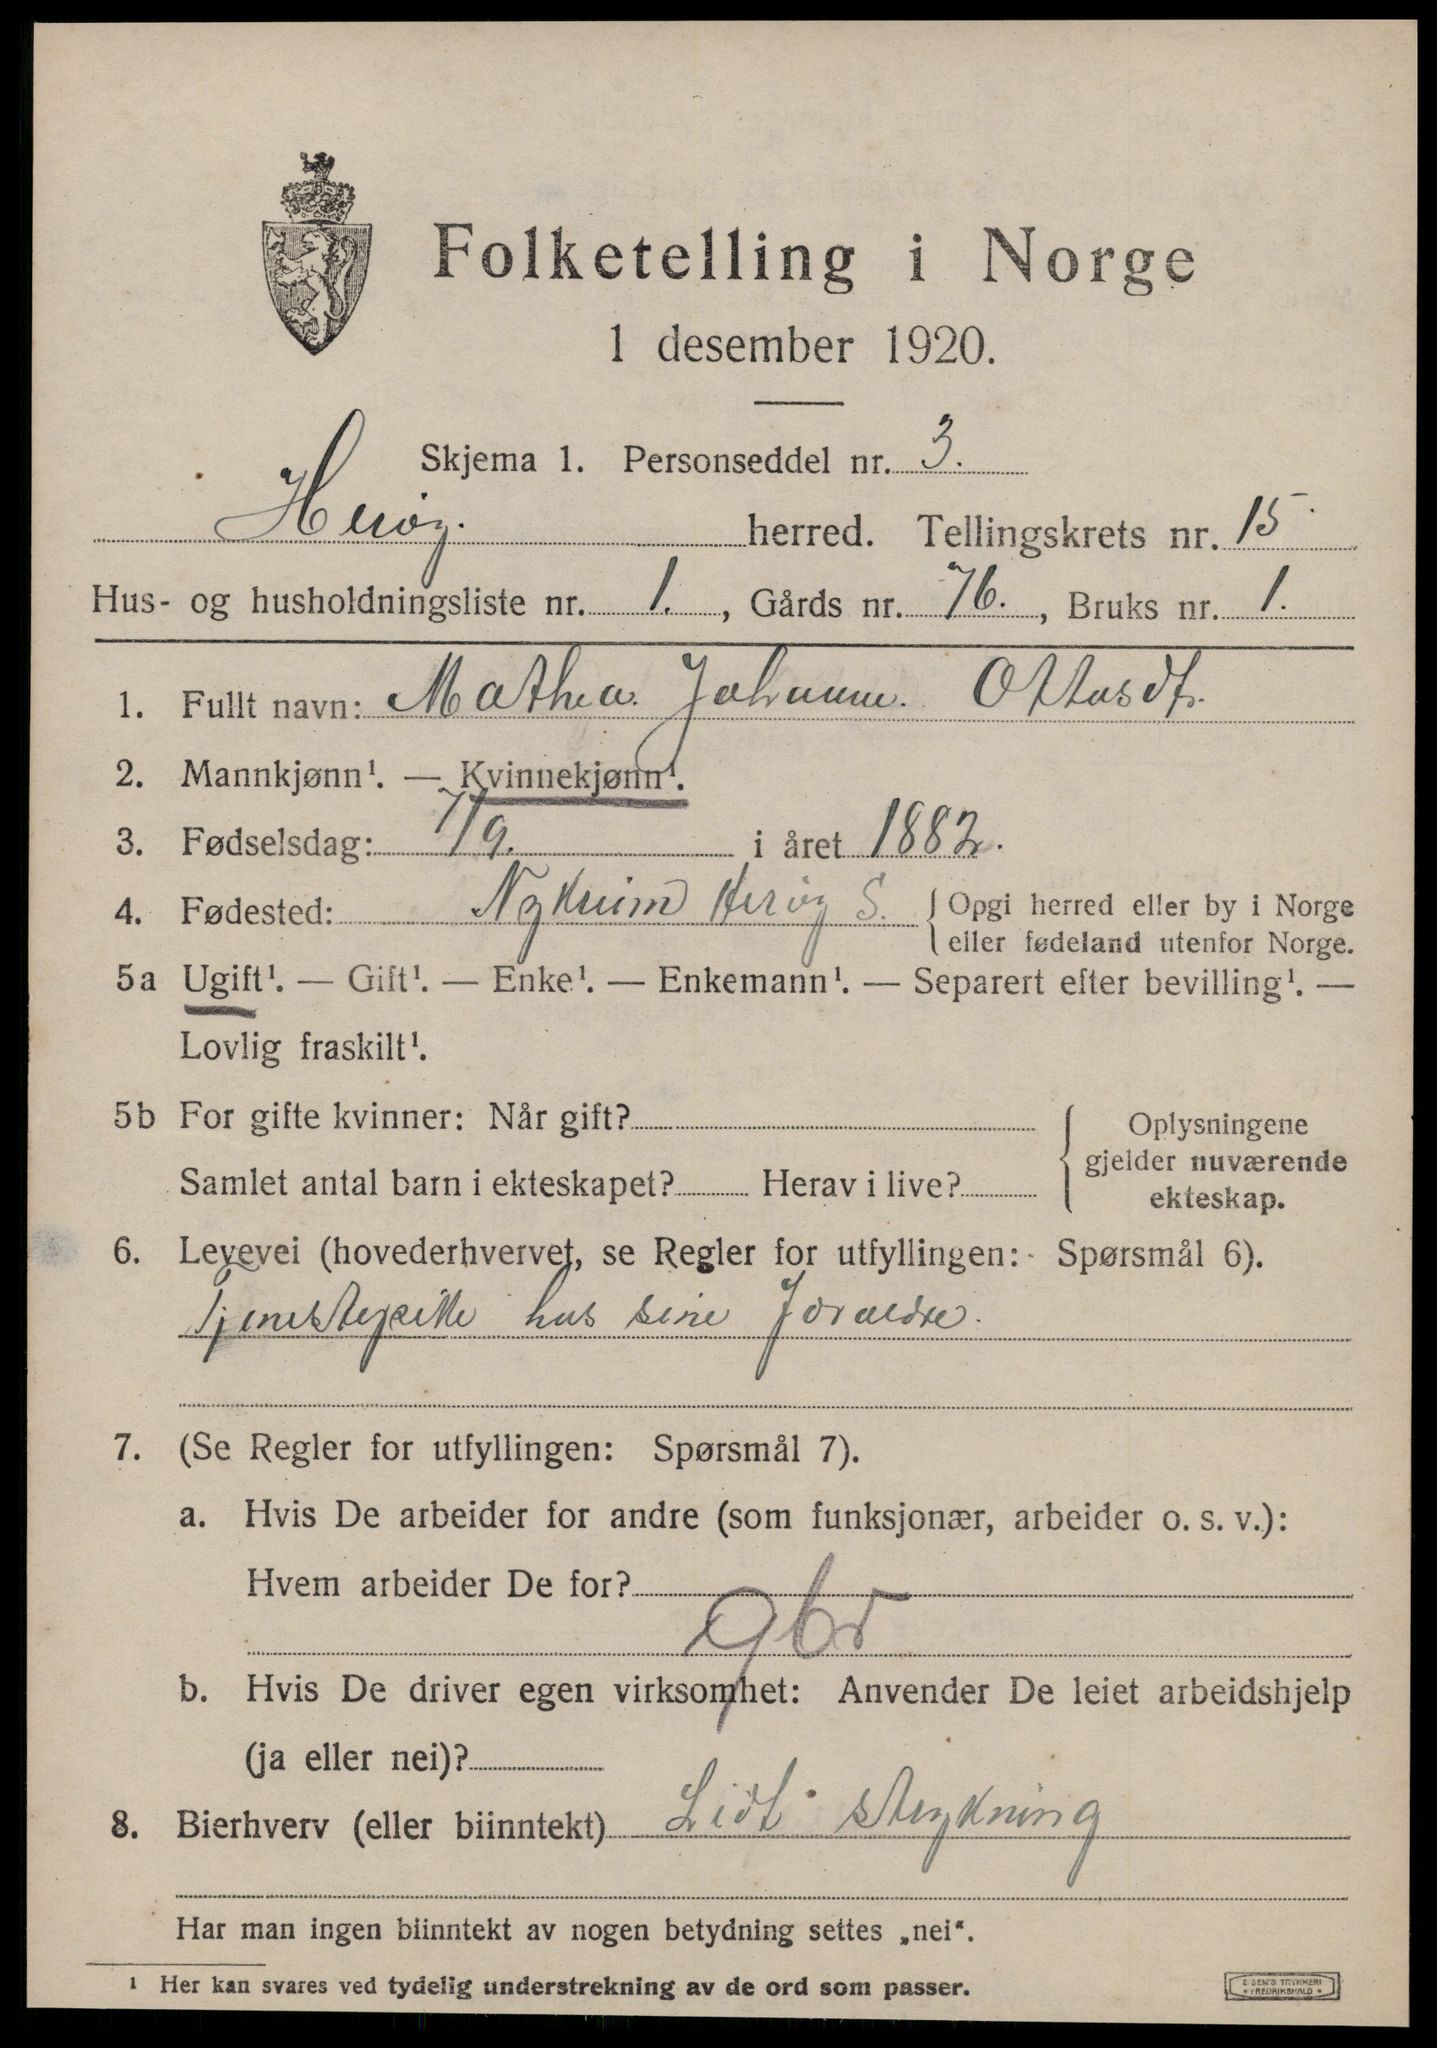 Folketelling i Norge
1 desember 1920.
Skjema 1. Personseddel nr. 3.
Herøy. herred. Tellingskrets nr. 15
Hus- og husholdningsliste nr. 1., Gårds nr. 76., Bruks nr. 1.
1. Fullt navn: Mathea. Johanne. Ottasdtr.
2. Mannkjønn¹. — Kvinnekjønn¹.
3. Fødselsdag: 7/9. i året 1882.
4. Fødested: Nykreim Herøy S. { Opgi herred eller by i Norge
eller fødeland utenfor Norge.
5a Ugift¹. — Gift¹. — Enke¹. — Enkemann¹. — Separert efter bevilling¹. —
Lovlig fraskilt¹.
5b For gifte kvinner: Når gift? { Oplysningene
gjelder nuværende
Samlet antal barn i ekteskapet? Herav i live?
ekteskap.
6. Levevei (hovederhvervet, se Regler for utfyllingen: Spørsmål 6).
Tjenestejente hos sine Foraldre.
7. (Se Regler for utfyllingen: Spørsmål 7).
a. Hvis De arbeider for andre (som funksjonær, arbeider o. s. v.):
Hvem arbeider De for?
gbr
b. Hvis De driver egen virksomhet: Anvender De leiet arbeidshjelp
(ja eller nei)?
8. Bierhverv (eller biinntekt) Lidt strykning
Har man ingen biinntekt av nogen betydning settes „nei“.
¹ Her kan svares ved tydelig understrekning av de ord som passer.
E. SEM'S TRYKKERI
* FREDRIKSHALD *